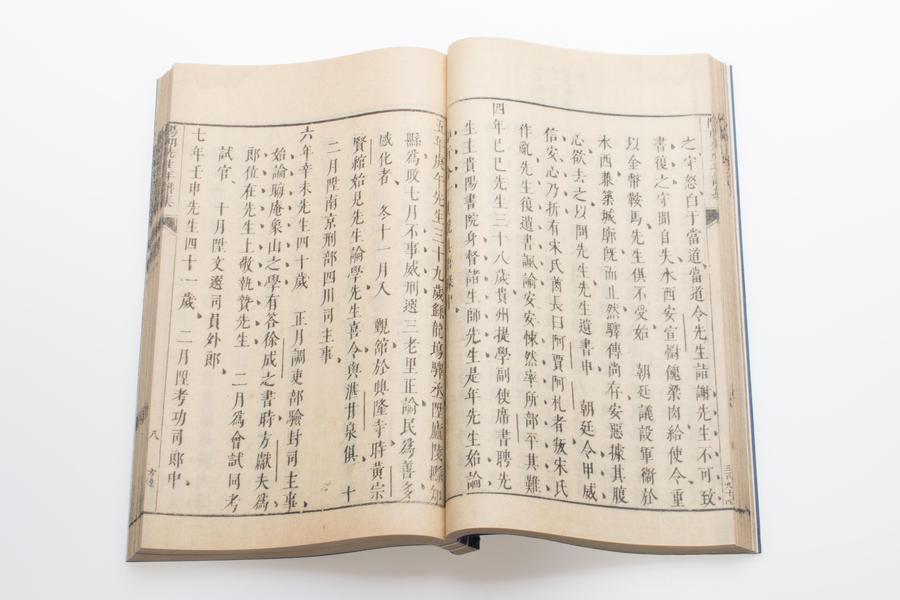 之守怒白于當道當道令先生詣謝先生不可致
書復之守聞自失水西安宣慰餽粱肉給使令重
以金幣鞍馬先生俱不受始 朝廷議設軍衞於
水西兼築城廓旣而止然驛傳尚存安惡據其腹
心欲去之以問先生先生遺書申 朝廷令甲威
信安心乃折有宋氏酋長曰阿賈阿札者叛宋氏
作亂先生復遺書諷諭安安悚然率所部平其難
四年己巳先生三十八歲貴州提學副使席書聘先
生主貴陽書院身督諸生師先生是年先生始論
五年庚午先生三十九歲錄龍場驛丞陞廬陵縣知
縣爲政七月不事威刑選三老里正論民爲善多
感化者 冬十一月入 覲舘於興隆寺時黃宗
賢綰始見先生論學先生喜令與湛甘泉俱 十
二月陞南京刑部四川司主事
六年辛未先生四十歲 正月調吏部驗封司主事
始論晦庵象山之學有答徐成之書時方獻夫爲
郎位在先生上敬執贄先生 二月爲會試同考
試官 十月陞文選司員外郎
七年壬申先生四十一歲 二月陞考功司郎中
陽明先生年譜
八